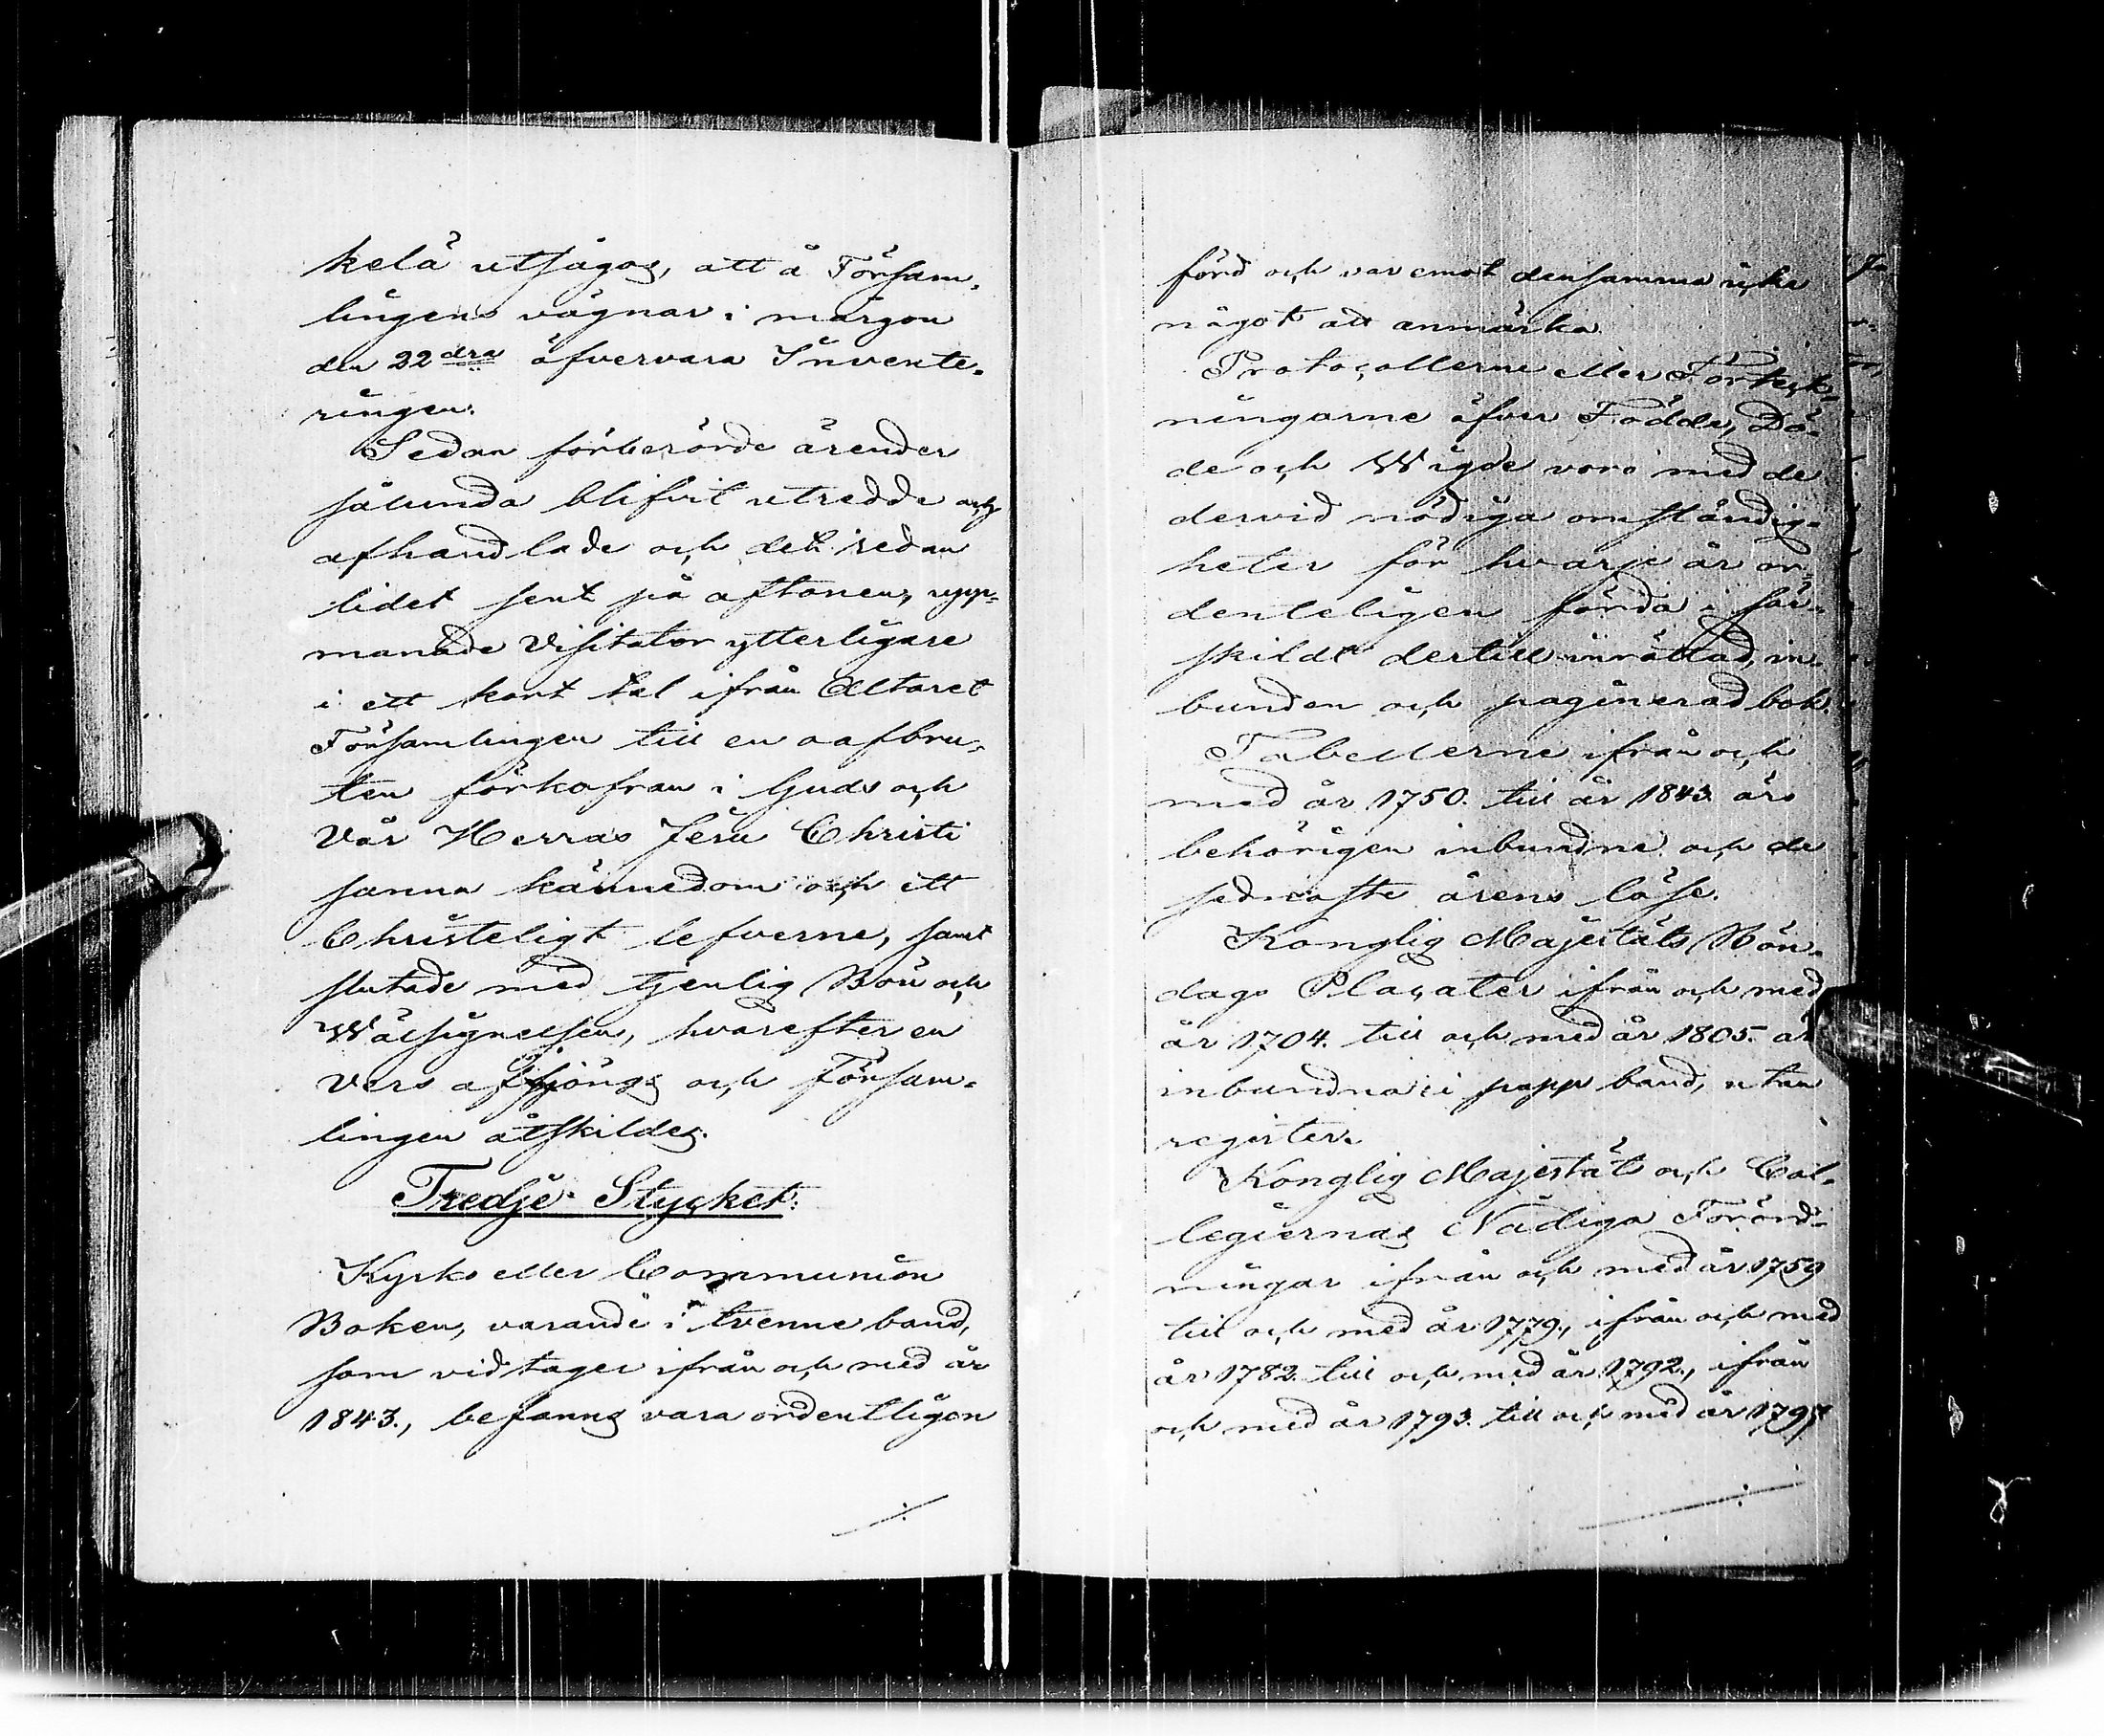 kelä utsågos, att å Försam-
lingens vägnar i morgon
den 22dra öfvervara Invente-
ringen.
Sedan förberörde ärender
sålunda blifvit utredde och
afhandlade och det redan
lidet sent på aftonen, upp-
manade Visitator ytterligare
i ett kort tal ifrån Altaret
Församlingen till en oafbru-
ten förkofran i Guds och
Vår Herras Jesu Christi
sanna kännedom och ett
Christeligt lefverne, samt
slutade med tjenlig Bön och
Wälsignelsen, hvarefter en
vers afsjöngs och Försam-
lingen åtskildes.
Tredje Stycket.
Kyrko eller Communion
Boken, varande i tvenne band,
som vidtager ifrån och med år
1843., befanns vara ordentligen
förd och var emot densamma icke
något att anmärka.
Protocollerne eller Förteck-
ningarne öfver Födde, Dö-
de och Wigde voro med de
dervid nödiga omständig-
heter för hvarje år or-
denteligen förda i sär-
skildt dertill inrättad, in-
bunden och paginerad bok.
Tabellerne ifrån och
med år 1750. till år 1843 äro
behörigen inbundne och de
sednaste årens löse.
Konglig Majestäts Bön-
dags Placater ifrån och med
år 1704. till och med år 1805. är
inbundna i papp band, utan
register.
Konglig Majestät och Col-
legiernas Nådiga Förord-
ningar ifrån och med år 1759
till och med år 1779., ifrån och med
år 1782. till och med år 1792., ifrån
och med år 1793. till och med år 1797